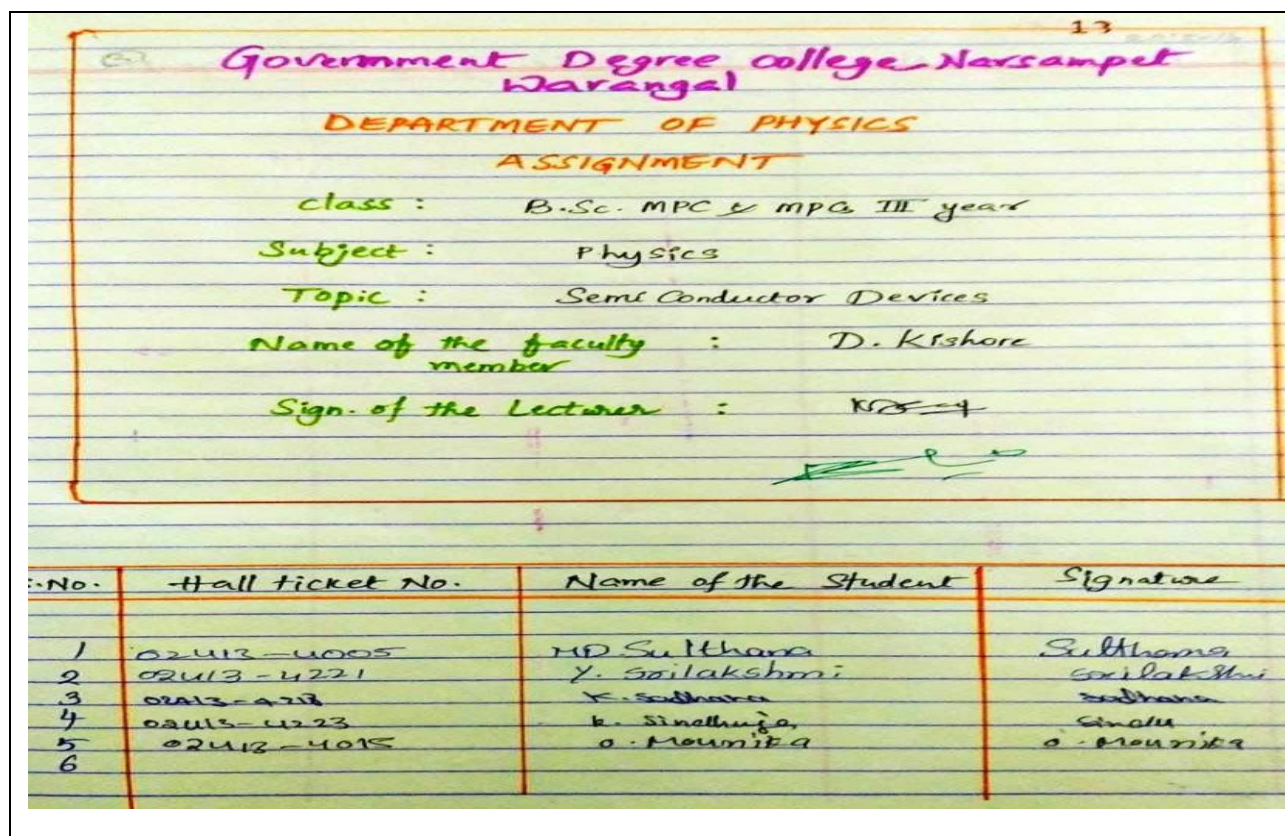 13
Government Degree college Narsampet
Warangal
DEPARTMENT OF PHYSICS
ASSIGNMENT
class : B.Sc. MPC & MPCs III year
Subject : Physics
Topic : Semi Conductor Devices
Name of the faculty member : D. Kishore
Sign. of the Lecturer :
.No. Hall ticket No. Name of the Student Signature
1 02413-4005 MD Sulthana Sulthana
2 02413-4221 Y. Srilakshmi
3 K. Sadhana Sadhana
4 02413-4223 k. Sindhuja Sindu
5 02413-4015 O. Mounika O. Mounika
6